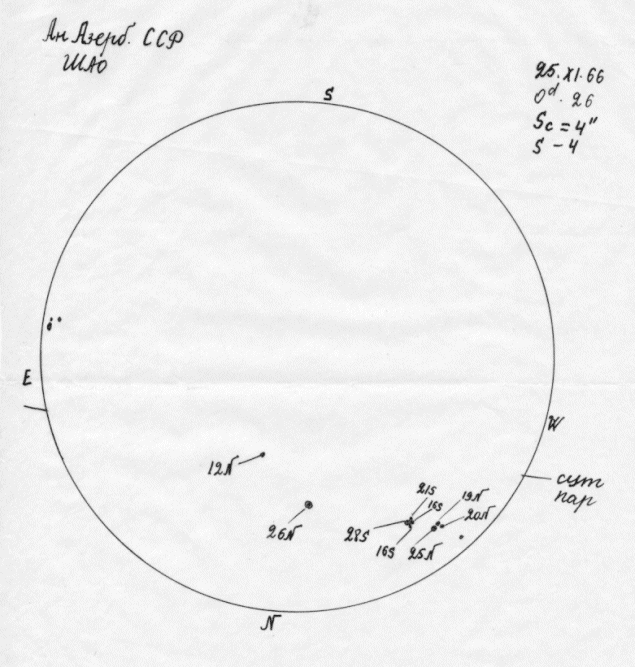 Ан Азерб. ССР
ШАО
25.XI.66
0ᵈ.26
Sc = 4"
S - 4
S
E
W
сут
пар
12N
26N
21S
16S
19N
20N
28S
16S
25N
N